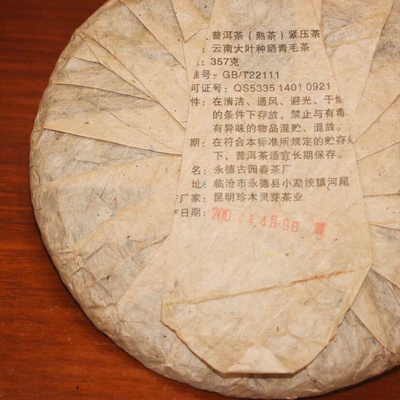 普洱茶（熟茶）紧压茶
：云南大叶种晒青毛茶
：357克
号：GB/T22111
可证号：QS5335 1401 0921
件：在清洁、通风、避光、干燥
的条件下存放，禁止与有毒
有异味的物品混贮、混放。
期：在符合本标准所规定的贮存
下，普洱茶适宜长期保存。
名：永德古园春茶厂
址：临沧市永德县小勐统镇河尾
厂家：昆明珍木灵芽茶业
产日期：
年4月9日